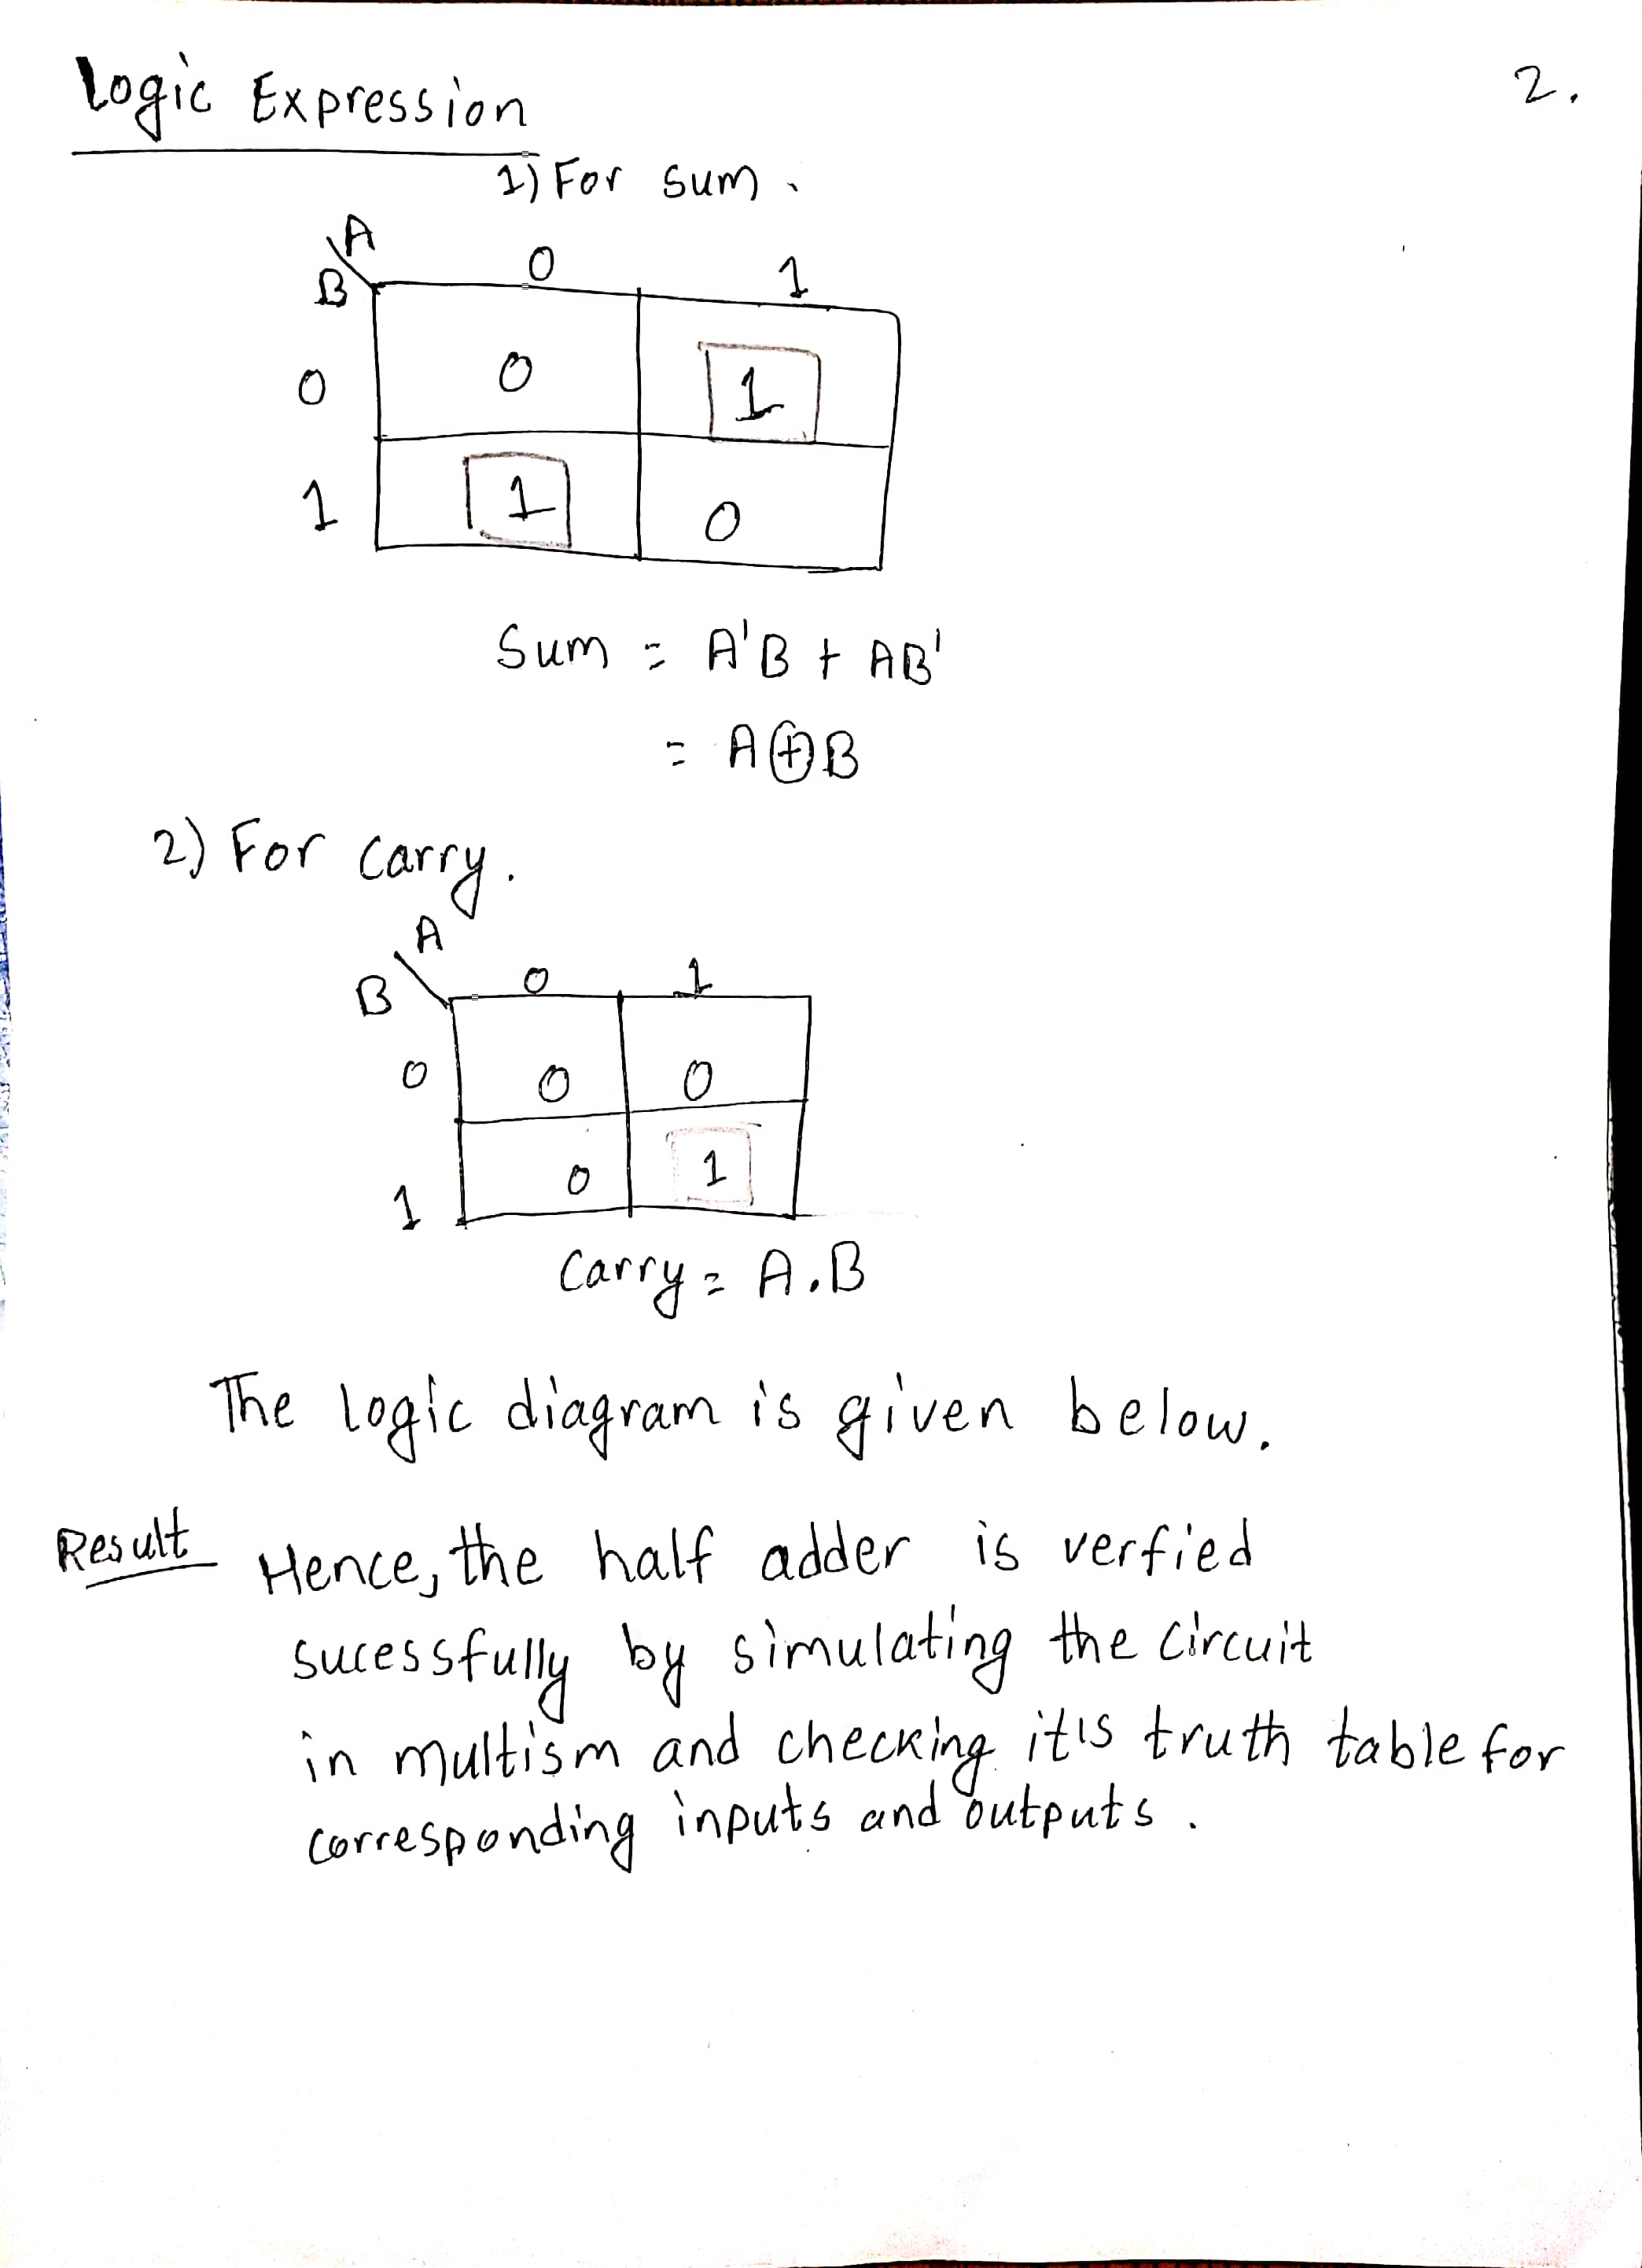 Logic Expression
2.
1) For sum.
A
B
0 1
0 0 1
1 1 0
Sum = A'B + AB'
= A⊕B
2) For carry.
A
B
0 1
0 0 0
1 0 1
Carry = A.B
The logic diagram is given below.
Result Hence, the half adder is verfied
sucessfully by simulating the circuit
in multism and checking it's truth table for
corresponding inputs and outputs.